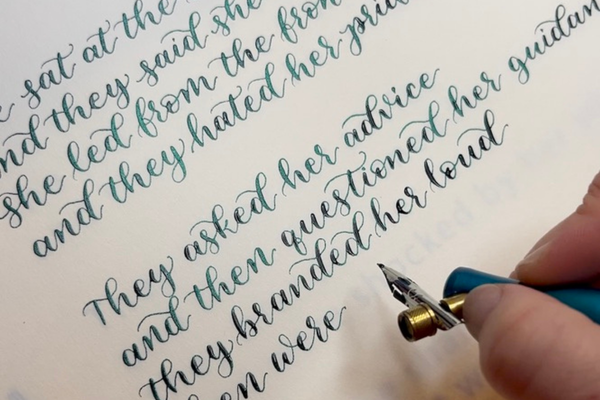 sat at the
and they said she
she led from the fron
and they hated her prid
They asked her advice
and then questioned her guidan
they branded her loud
were